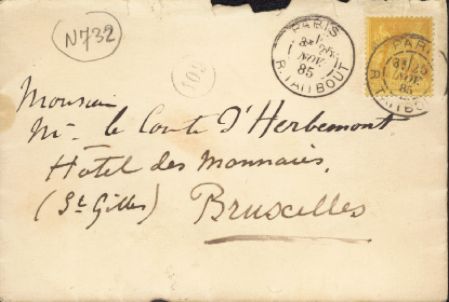 N732
PARIS
NOV.
85
R. TAITBOUT
109
PARIS
NOV.
85
R. TAITBOUT
Monsieur
Mr. le Comte d'Herbemont
Hôtel des Monnaies,
(St. Gilles) Bruxelles